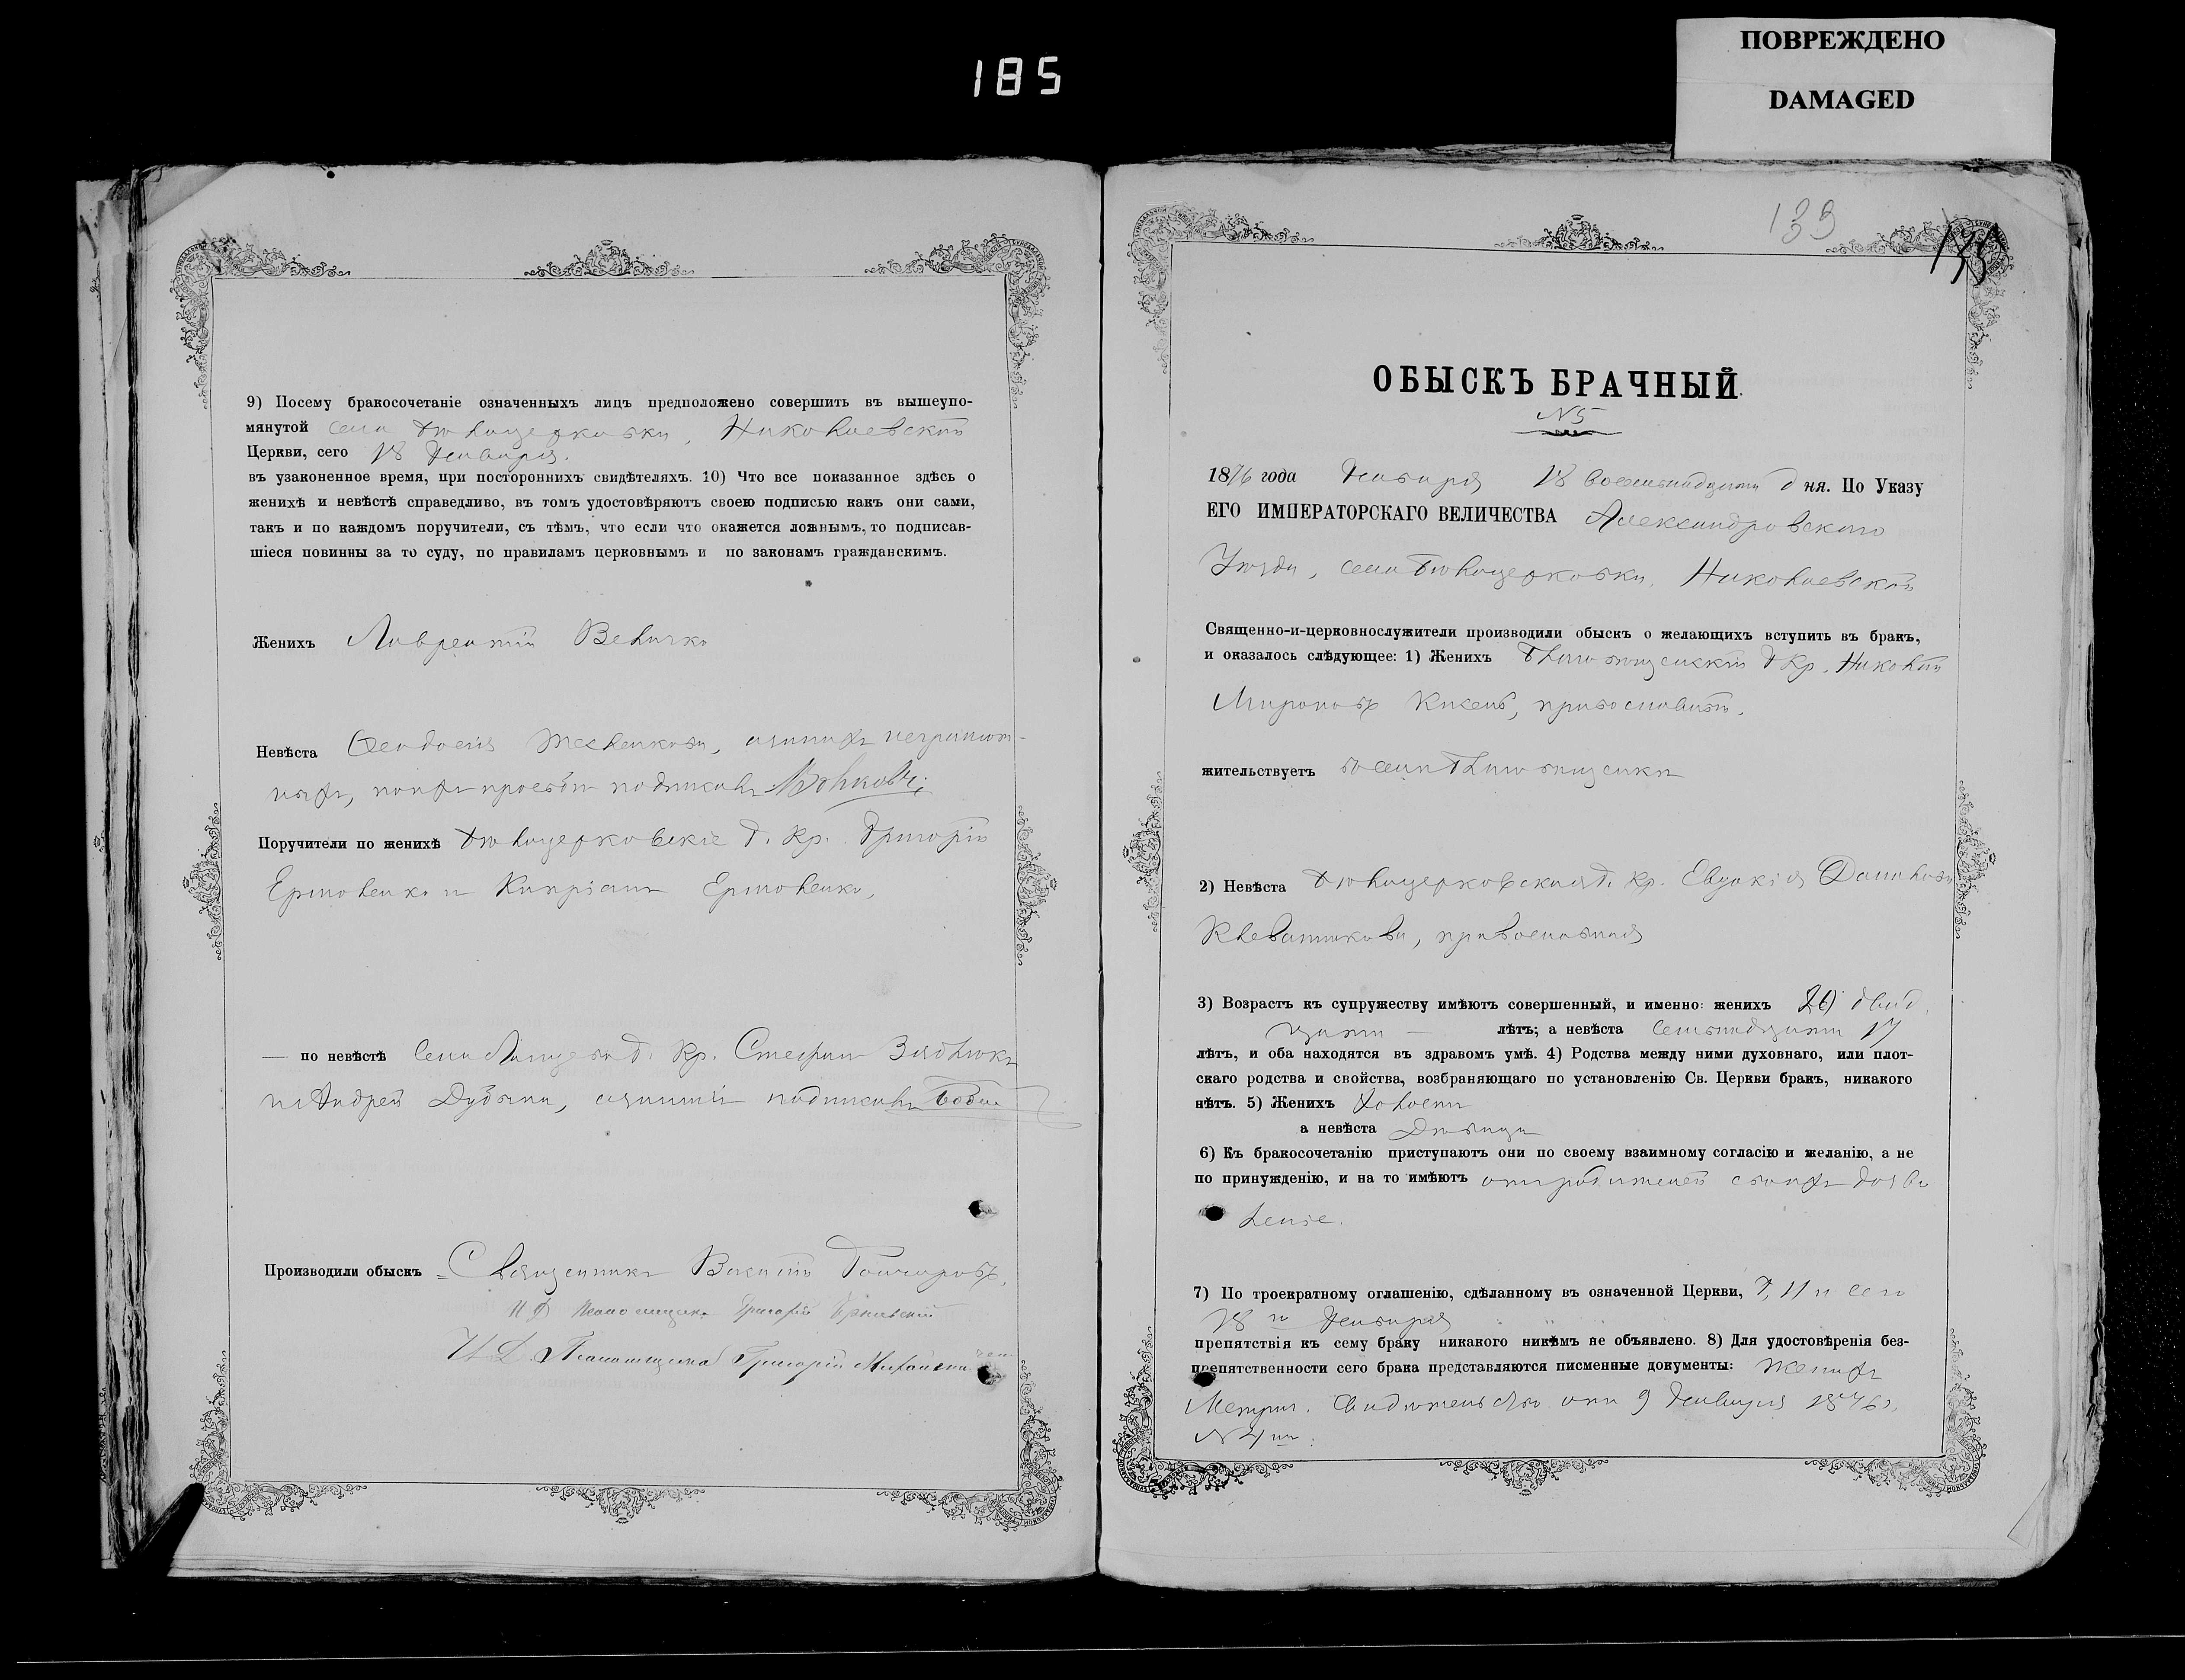 ПОВРЕЖДЕНО
DAMAGED
185
9) Посему бракосочетаніе означенныхъ лицъ предположено совершить въ вышеупо-
мянутой села Бѣлоцерковки, Николаевской
Церкви, сего 18 Января.
въ узаконенное время, при постороннихъ свидѣтеляхъ. 10) Что все показанное здѣсь о
женихѣ и невѣстѣ справедливо, въ томъ удостовѣряютъ своею подписью какъ они сами,
такъ и по каждомъ поручители, съ тѣмъ, что если что окажется ложнымъ, то подписав-
шіеся повинны за то суду, по правиламъ церковнымъ и по законамъ гражданскимъ.
Женихъ Лаврентій Величко
Невѣста Ѳеодосія а за нихъ неграмот-
ныхъ, по ихъ просьбѣ подписалъ
Поручители по женихѣ Бѣлоцерковскіе Г. Кр. Григорій
Ермоленко и Кипріанъ Ермоленко,
— по невѣстѣ Села Г. Кр. Стефанъ
и Андрей а за нихъ подписалъ
Производили обыскъ Священникъ Василій Гончаровъ,
И Д Псаломщика Григорій
И. Д. Псаломщика Григорій
139
135
ОБЫСКЪ БРАЧНЫЙ.
№5
1876 года Января 18 восемнадцати дня. По Указу
ЕГО ИМПЕРАТОРСКАГО ВЕЛИЧЕСТВА Александровскаго
Уѣзда, села Бѣлоцерковки, Николаевской
Священно-и-церковнослужители производили обыскъ о желающихъ вступить въ бракъ,
и оказалось слѣдующее: 1) Женихъ Благовѣщенскій Г. Кр. Николай
Мироновъ православный.
жительствуетъ въ селѣ Благовѣщенкѣ
2) Невѣста Бѣлоцерковская Г. Кр. Евдокія Данилова
православная
3) Возрастъ къ супружеству имѣютъ совершенный, и именно: женихъ 20 двад
цати — лѣтъ; а невѣста семнадцати 17
лѣтъ, и оба находятся въ здравомъ умѣ. 4) Родства между ними духовнаго, или плот-
скаго родства и свойства, возбраняющаго по установленію Св. Церкви бракъ, никакого
нѣтъ. 5) Женихъ Холостъ
а невѣста Дѣвица
6) Къ бракосочетанію приступаютъ они по своему взаимному согласію и желанію, а не
по принужденію, и на то имѣютъ отъ родителей своихъ дозво
леніе.
7) По троекратному оглашенію, сдѣланному въ означенной Церкви, 11 и сего
18 го Января
препятствія къ сему браку никакого никѣмъ не объявлено. 8) Для удостовѣренія без-
препятственности сего брака представляются писменные документы: Женихъ
Метрич. свидѣтельство отъ 9 Января 1876 г.
№ 4 мъ.